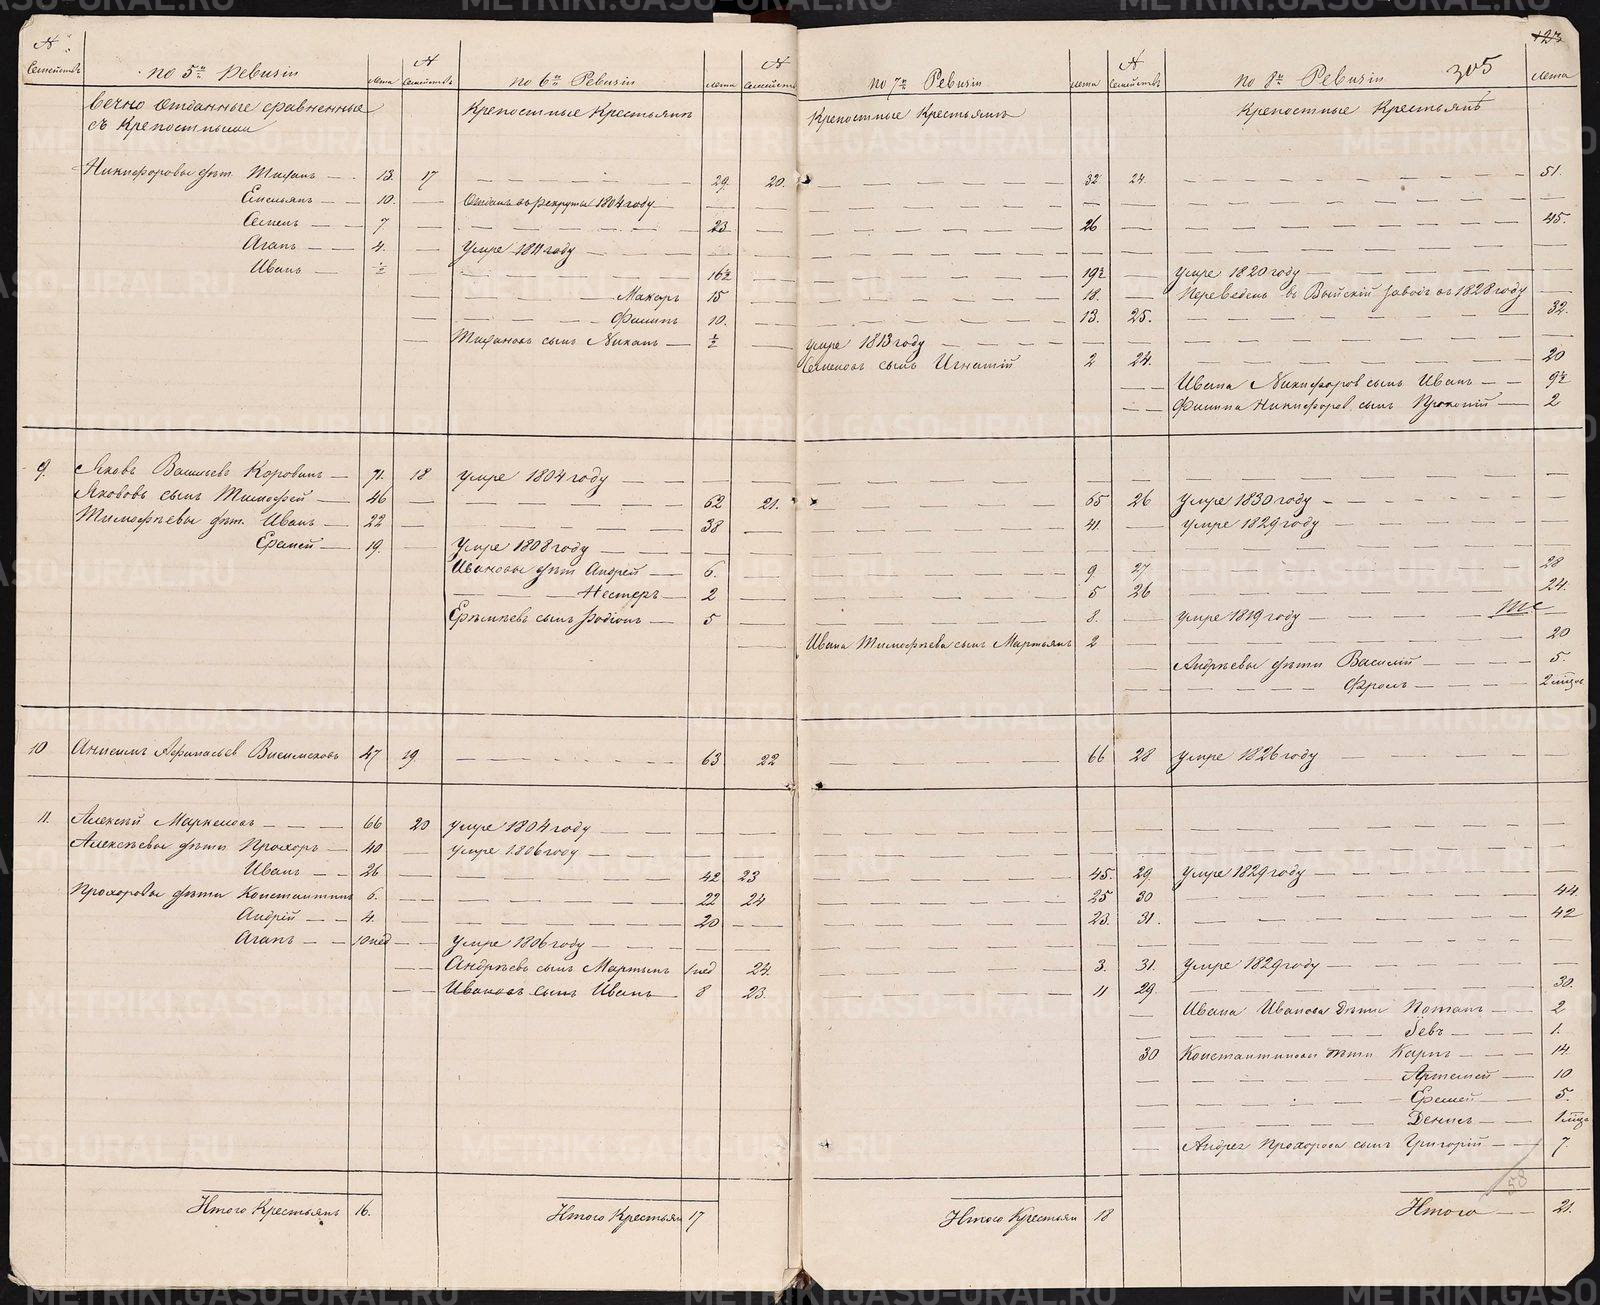 № Семействъ по 5й Ревизіи лѣта № Семействъ по 6й Ревизіи лѣта № Семействъ по 7й Ревизіи лѣта № Семействъ по 8й Ревизіи 305 лѣта
123
вечно отданные сравненные Крепостные Крестьянъ Крепостные Крестьянъ Крепостные Крестьянъ
съ Крепостными
Никифоровы дѣт. 13 17 29 20. 32 24. 51.
Емельянъ 10. Отданъ въ рекруты 1804 году
Семенъ 7 23 26 45.
Агапъ 4. Умре 1811 году
Иванъ ½ 16½ 19½ Умре 1820 году
Макаръ 15 18. Переведенъ въ Выйскій заводъ въ 1828 году
Филипъ 10. 13. 25. 32.
сынъ ½ умре 1813 году
Семеновъ сынъ Игнатій 2 24. 20
Ивана Никифоров сынъ Иванъ 9½
Филипа Никифоров. сынъ Прокопій 2
9. Яковъ Васильевъ Коровинъ 71. 18 умре 1804 году
Яковлевъ сынъ Тимофей 46 62 21. 65 26 Умре 1830 году
Тимофѣевы дѣт. Иванъ 22 38 41 Умре 1829 году
Еремей 19. Умре 1808 году
Ивановы дѣт Андрей 6. 9 27 28
Нестеръ 2 5 26 24.
Еремѣевъ сынъ Родіонъ 5 8. умре 1819 году
Ивана Тимофѣева сынъ Мартьянъ 2 20
Андрѣевы дѣти Василій 5.
Фролъ 2 мца
10 Анисимъ Афонасьев 47 19 63 22 66 28 умре 1826 году
11. Алексѣй Маркеловъ 66 20 умре 1804 году
Алексѣевы дѣти Прохоръ 40 умре 1806 году
Иванъ 26 42 23 45. 29. Умре 1829 году
Прохоровы дѣти Константинъ 6. 22 24 25 30 44.
Андрѣй 4. 20 23. 31. 42
Агапъ 10 нед умре 1806 году
Андрѣевъ сынъ Мартынъ 1 нед 24. 3. 31. Умре 1829 году
Ивановъ сынъ Иванъ 8 23. 11 29. 30.
Ивана Иванова Дѣти 2
1.
30 Константиновы дѣти Карпъ 14
Артемей 10
Еремей 5.
Денисъ 1 мца
Андрея Прохорова сынъ Григорій 7.
58
Итого Крестьянъ 16. Итого Крестьян 17 Итого Крестьян 18 Итого 21.
METRIKI.GASO-URAL.RU